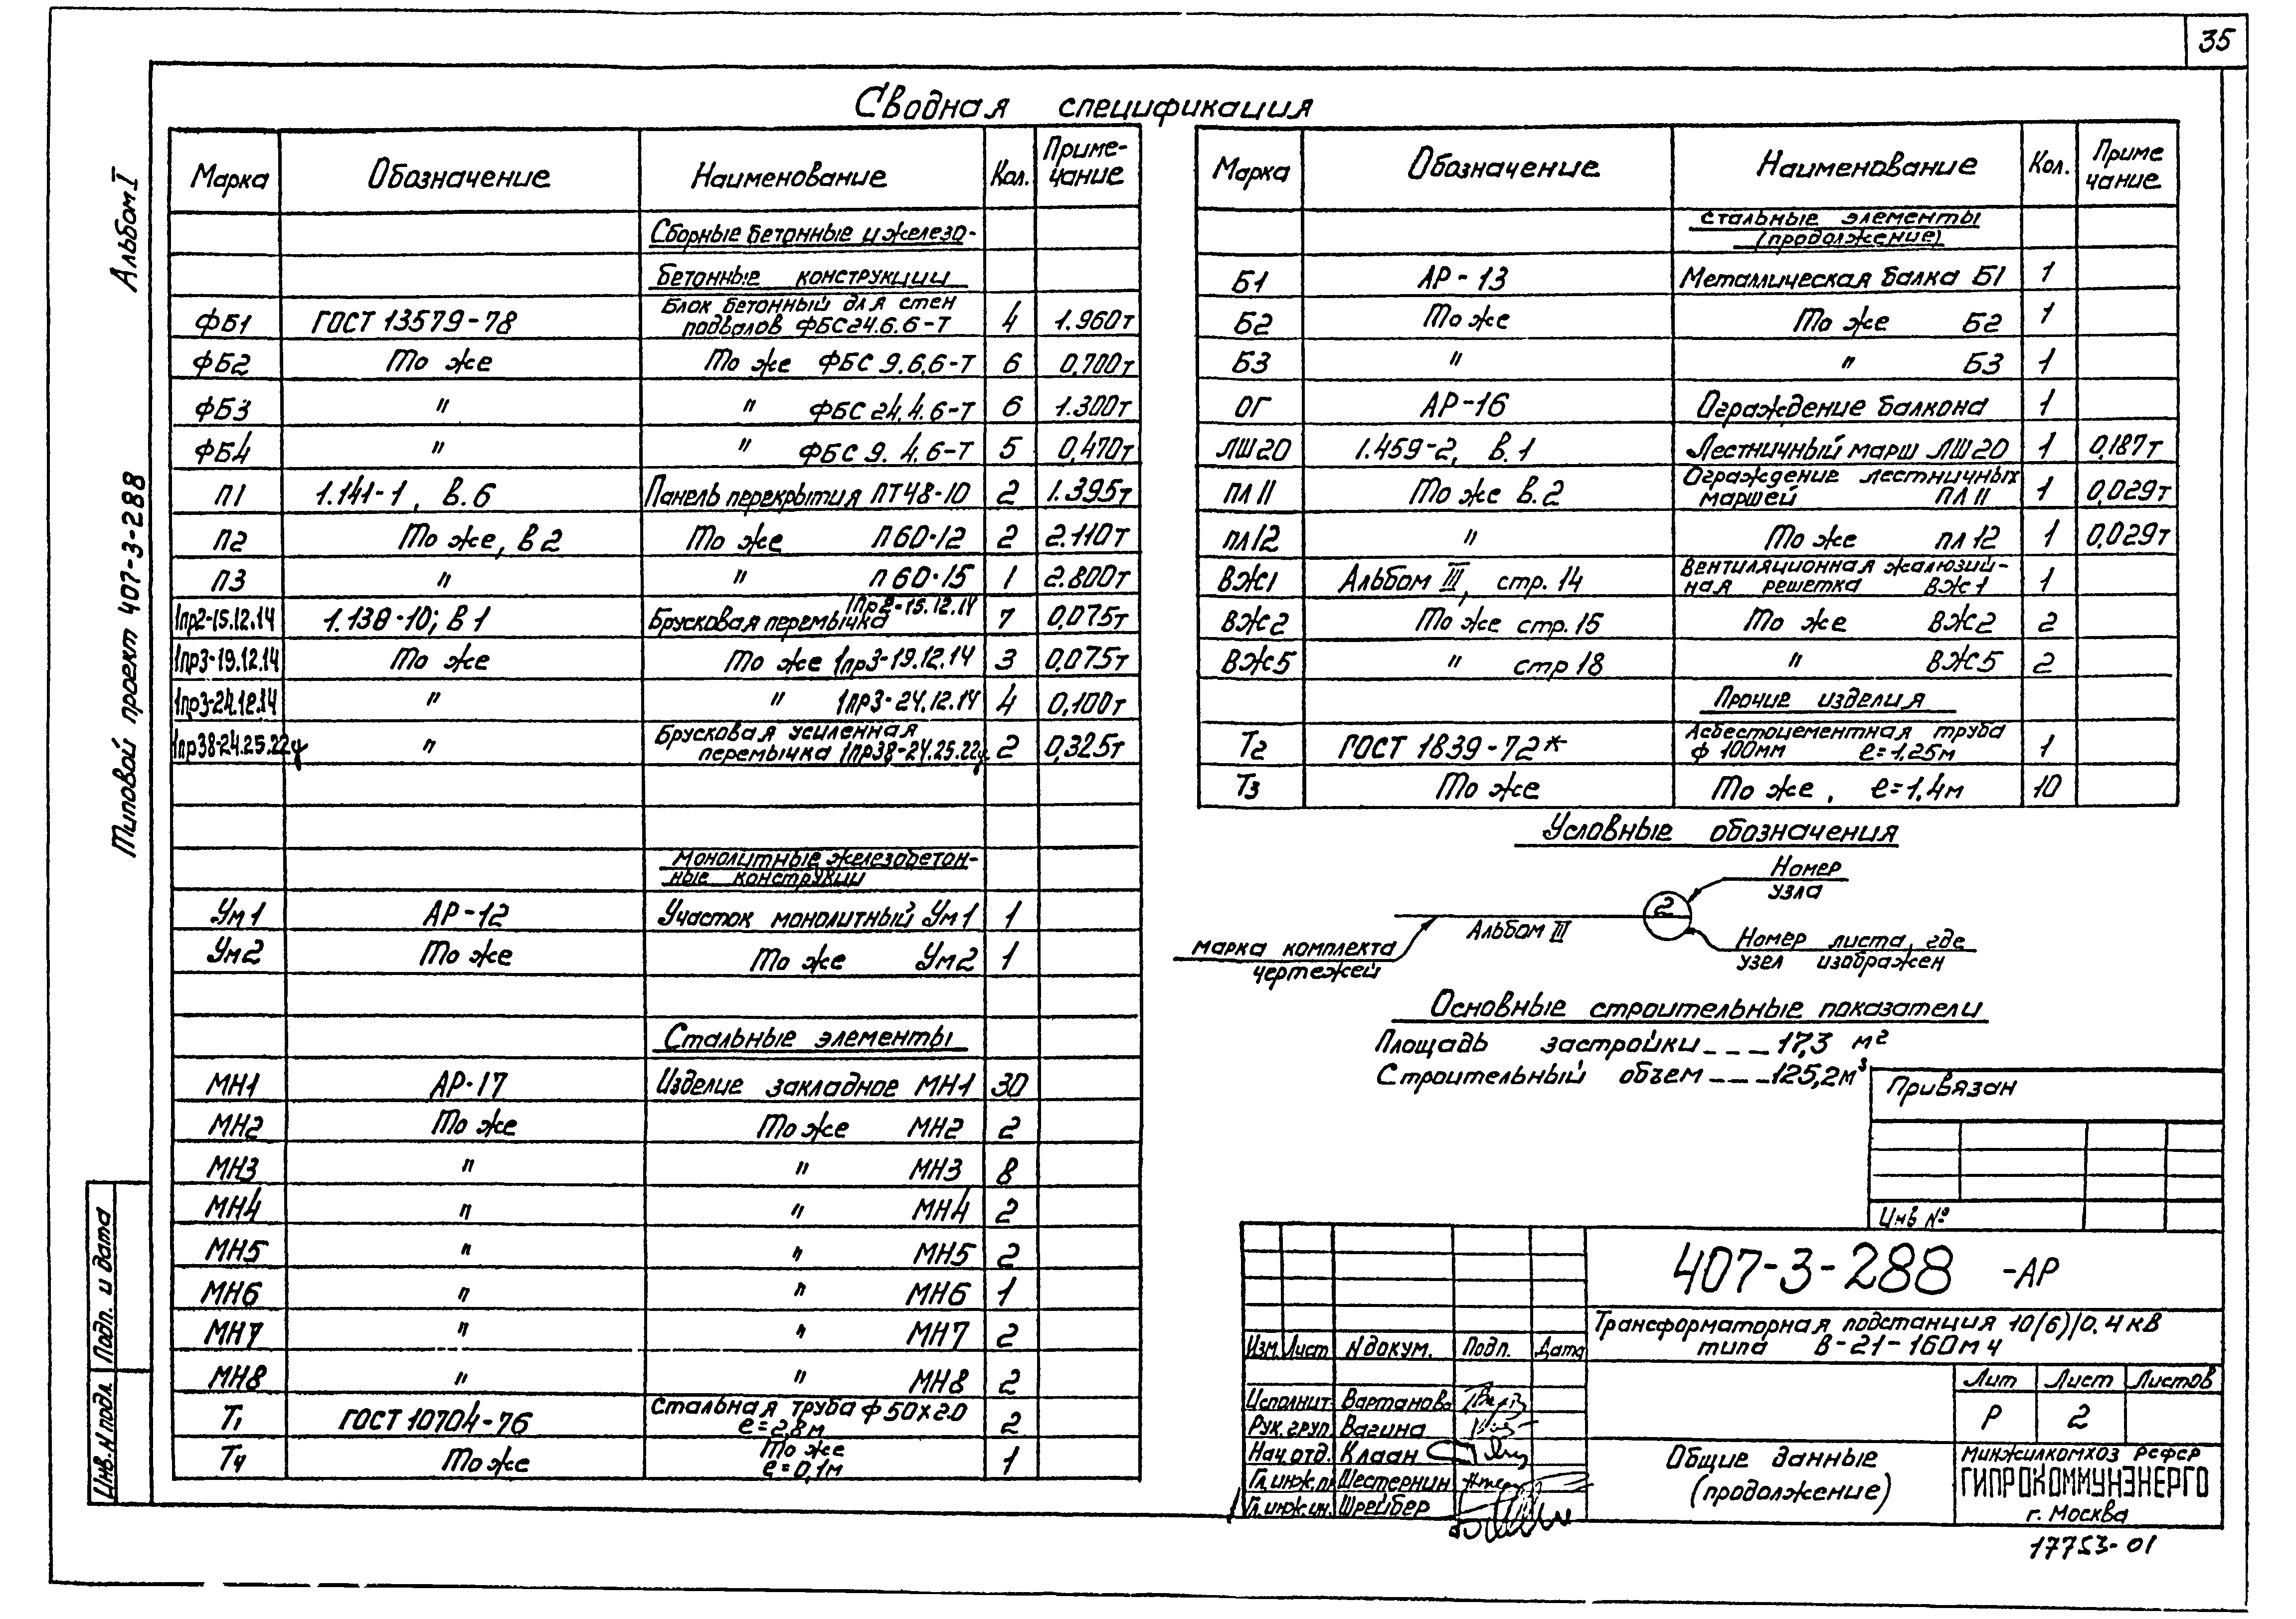 35
Альбом I
Типовой проект 407-3-288
Сводная спецификация
Марка Обозначение Наименование Кол. Приме-
чание
Сборные бетонные и железо-
бетонные конструкции
ФБ1 ГОСТ 13579-78 Блок бетонный для стен
подвалов ФБС24.6.6-Т 4 1.960т
ФБ2 То же То же ФБС 9.6.6-Т 6 0,700т
ФБ3 " " ФБС 24.4.6-Т 6 1.300т
ФБ4 " " ФБС 9.4.6-Т 5 0,470т
П1 1.141-1, в.6 Панель перекрытия ПТ48-10 2 1.395т
П2 То же, в 2 То же П60-12 2 2.110т
П3 " " П60-15 1 2.800т
1пр2-15.12.14 1.138-10; в 1 Брусковая перемычка 1пр2-15.12.14 7 0,075т
1пр3-19.12.14 То же То же 1пр3-19.12.14 3 0,075т
1пр3-24.12.14 " " 1пр3-24.12.14 4 0,100т
1пр38-24.25.22у " Брусковая усиленная
перемычка 1пр38-24.25.22у 2 0,325т
Монолитные железобетон-
ные конструкции
Ум1 АР-12 Участок монолитный Ум1 1
Ум2 То же То же Ум2 1
Стальные элементы
МН1 АР-17 Изделие закладное МН1 30
МН2 То же То же МН2 2
МН3 " " МН3 8
МН4 " " МН4 2
МН5 " " МН5 2
МН6 " " МН6 1
МН7 " " МН7 2
МН8 " " МН8 2
Т1 ГОСТ 10704-76 Стальная труба ф50х2.0
ℓ=2,8м 2
Т4 То же То же
ℓ=0,1м 1
Марка Обозначение Наименование Кол. Приме
чание
Стальные элементы
(продолжение)
Б1 АР-13 Металлическая балка Б1 1
Б2 То же То же Б2 1
Б3 " " Б3 1
ОГ АР-16 Ограждение балкона 1
ЛШ20 1.459-2, в.1 Лестничный марш ЛШ20 1 0,187т
ПЛ11 То же в.2 Ограждение лестничных
маршей ПЛ11 1 0,029т
ПЛ12 " То же ПЛ12 1 0,029т
ВЖ1 Альбом III, стр. 14 Вентиляционная жалюзий-
ная решетка ВЖ1 1
ВЖ2 То же стр.15 То же ВЖ2 2
ВЖ5 " стр 18 " ВЖ5 2
Прочие изделия
Т2 ГОСТ 1839-72* Асбестоцементная труба
ф 100мм ℓ=1,25м 1
Т3 То же То же, ℓ=1.4м 10
Условные обозначения
Номер
узла
2
Альбом III
Марка комплекта
чертежей
Номер листа, где
узел изображен
Основные строительные показатели
Площадь застройки ---- 17,3 м²
Строительный объем ---- 125,2м³
Привязан
Инв №
407-3-288 -АР
Трансформаторная подстанция 10(6)/0.4кв
типа В-21-160м4
Изм. Лист N докум. Подп. Дата
Исполнит. Вартанова
Рук. груп. Вагина
Нач. отд. Клаан
Гл. инж. пр. Шестернин
Гл. инж. ин. Шрейбер
Общие данные
(продолжение)
Лит Лист Листов
Р 2
Минжилкомхоз РСФСР
ГИПРОКОММУНЭНЕРГО
г. Москва
17753-01
Подп. и дата
Инв. N подл.